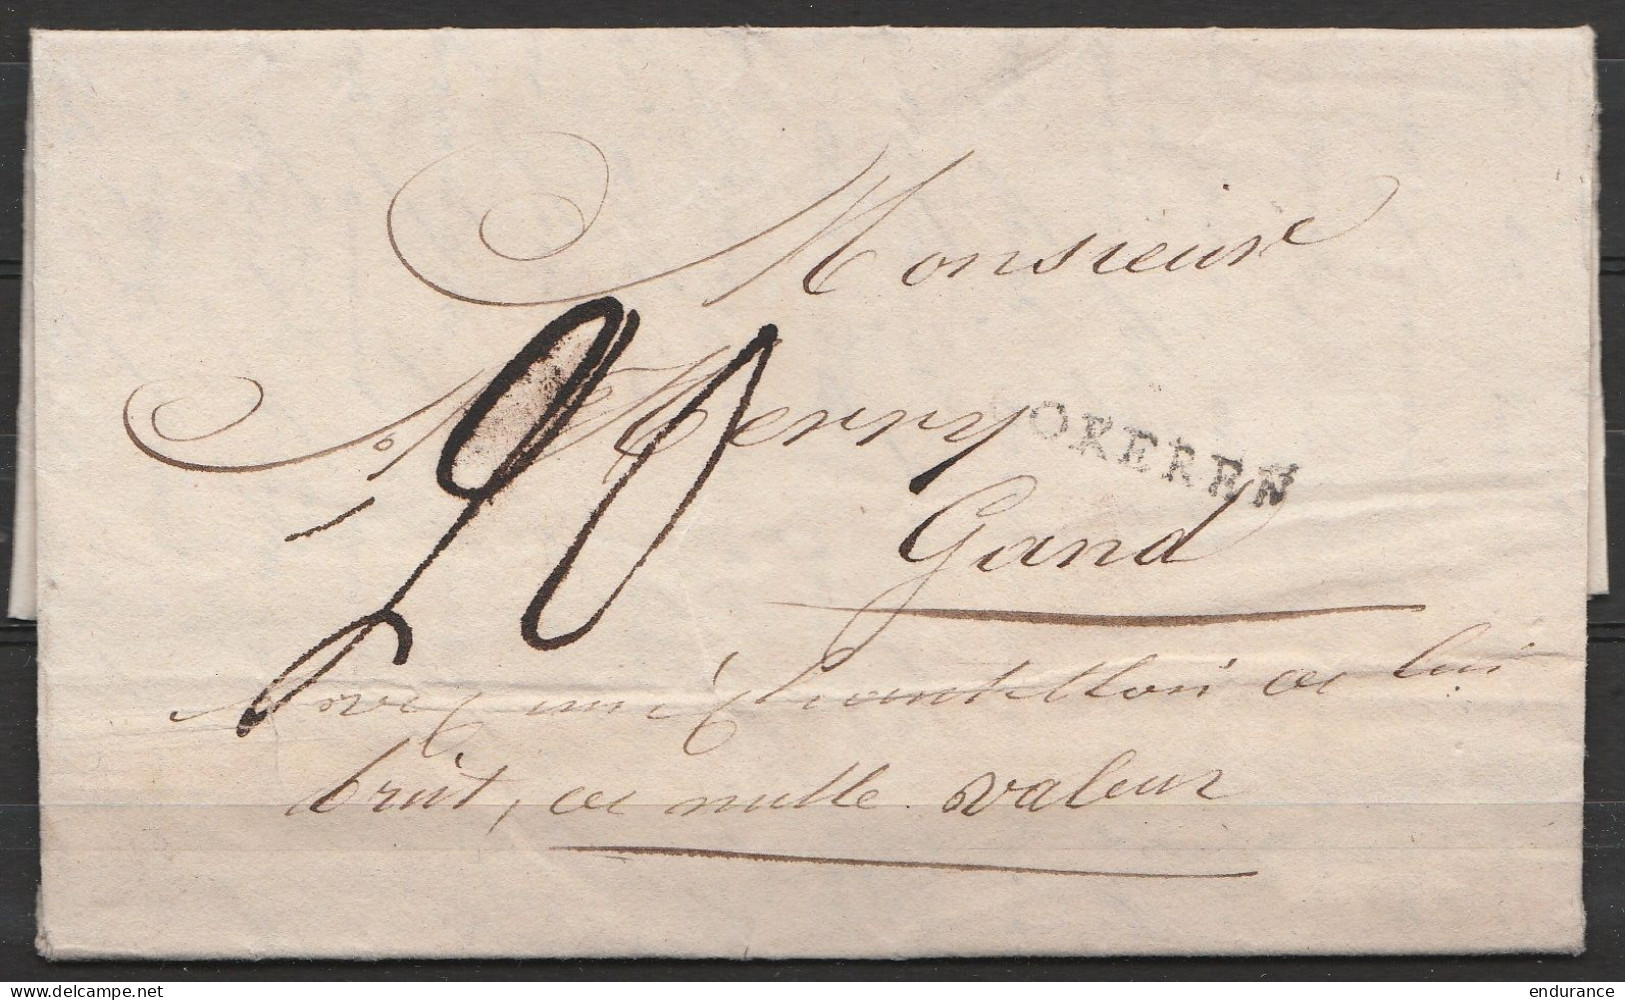 Monsieur
Merry
OKEREN
Gand
20
Avec un échantillon de lin
brut, de nulle valeur
delcampe.net
endurance